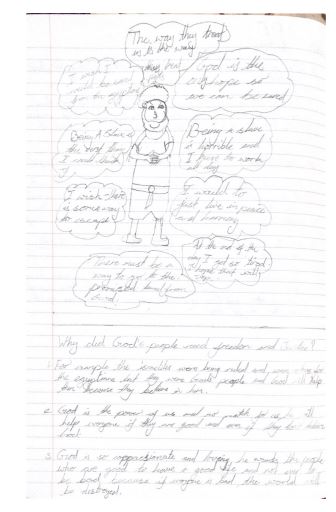 The way they treat
us is the way
they treat
I wish I
could be used
for the egyptian
God is the
only hope so
we can be saved
Being A Slave is
the worst thing
I could think
of
Being a slave
is horrible and
I have to work
all day
I wish there
is some way
to escape
I would to
just live in peace
and harmony
There must be a
way to go to the
promised land from
God
At the end of the
day I get so tired
I hope that will
stop
Why did God's people need freedom and Justice?
1. For example the Israelites were being ruled and were slaves for
the egyptians but they were God's people and God will help
them because they believe in him.
2. God is the power of us and no match to us, he will
help everyone if they are good and even if they have been
bad
3. God is so compassionate and loving he wants the people
who are good to have a good life and not
be bad because if everyone is bad the world will
be destroyed.